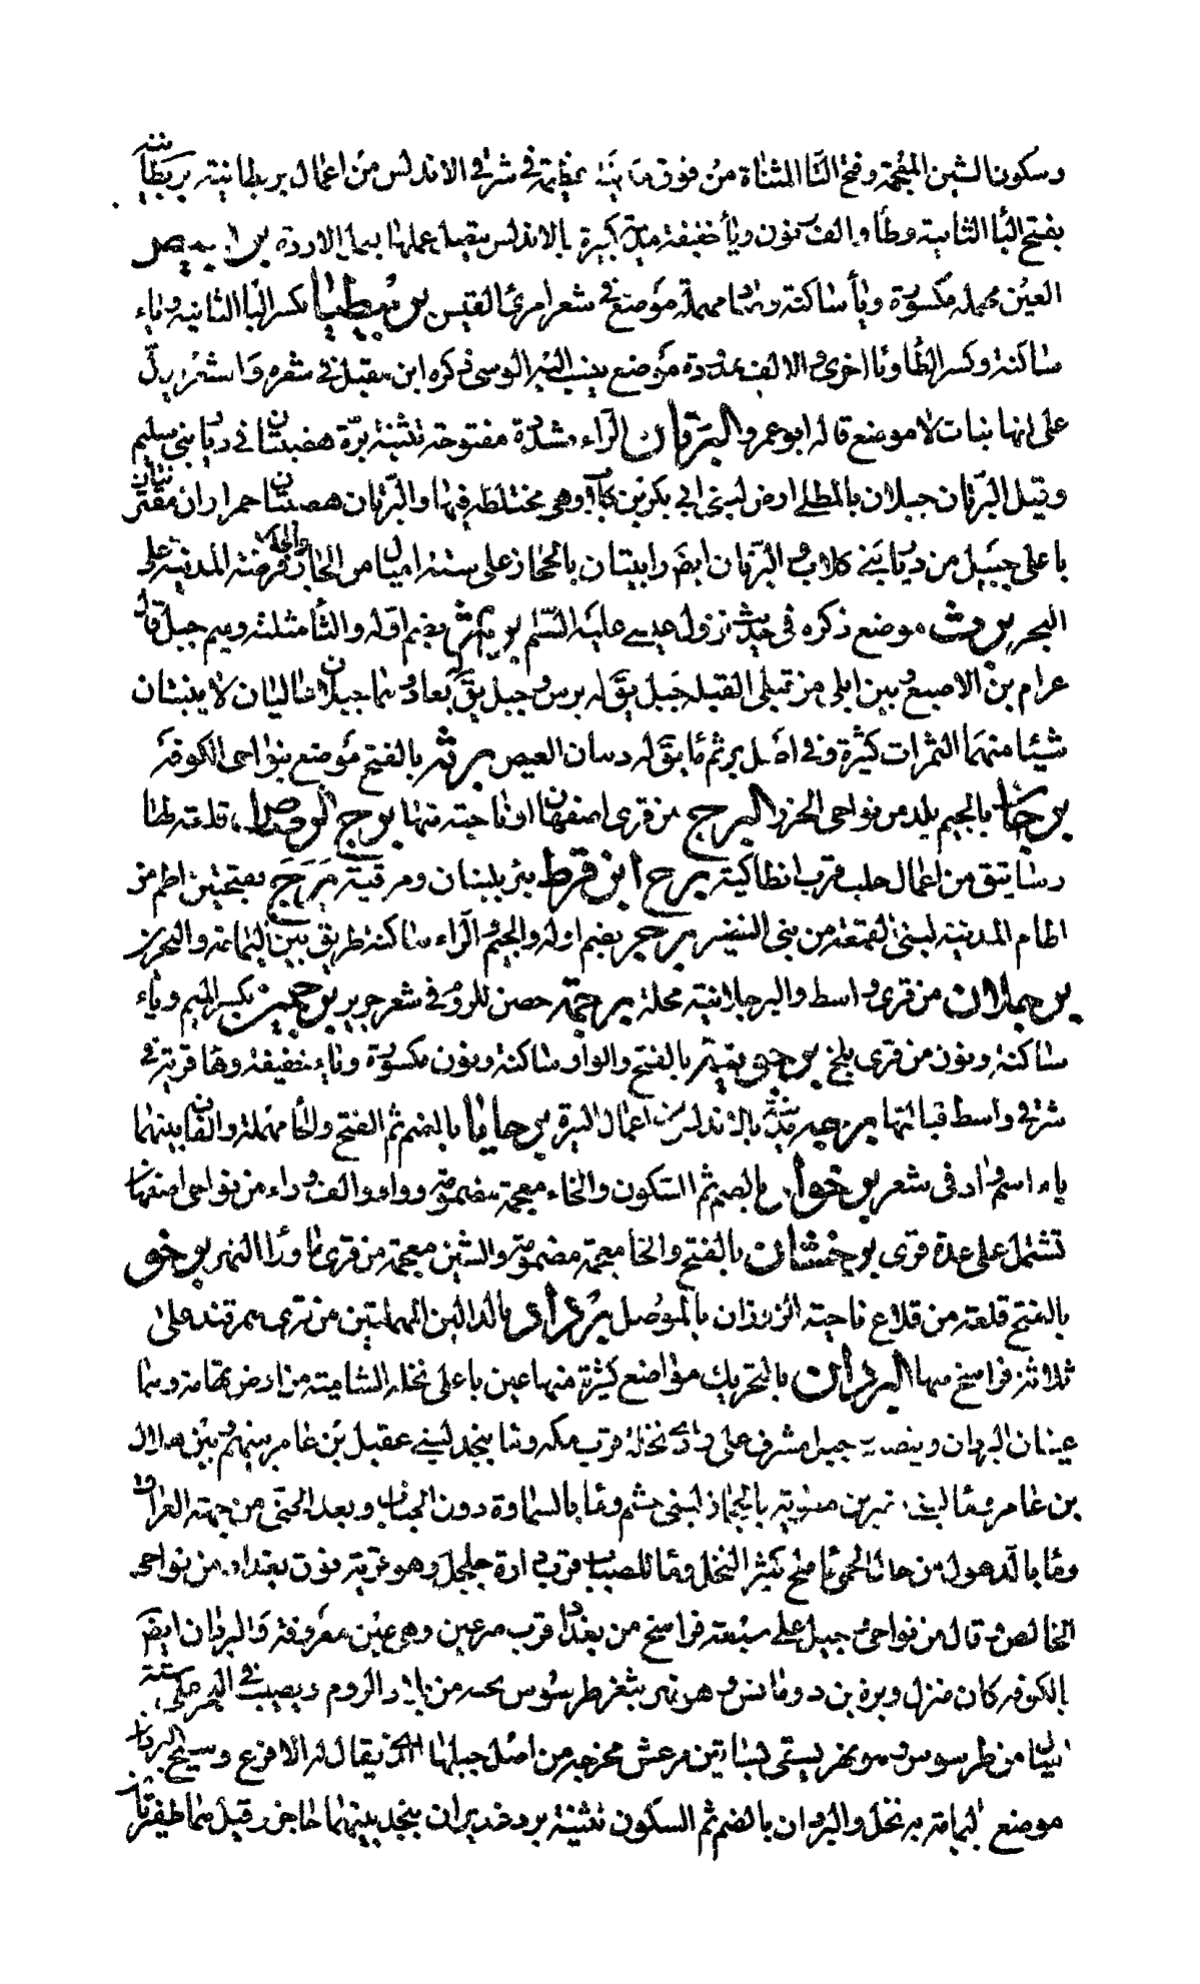 وسكون الشين المعجمة وفتح التا المثناة من فوق مدينة عظيمة في شرقي الاندلس من اعمال بربطانية بربطانية
بفتح البا الثانية وطا والف ونون ويا خفيفة مدينة كبيرة بالاندلس يتصل عملها بعمل لاردة بربعيص
العين مهملة مكسورة ويا ساكنة وصاد مهملة موضع في شعر امرئ القيس بربيطيا بكسر البا الثانية وياء
ساكنة وكسر الطا ويا اخرى والالف ممدودة موضع ينسب اليه الوشى ذكره ابن مقبل في شعره واستعمر يدل
على انها نبات لا موضع قاله ابو عمرو البرتان الراء مشددة مفتوحة تثنية برة هضبتان في ديار بني سليم
وقيل البرتان جبلان بالمطلى ارض لبني ابي بكر بن كلاب وهي مختلطة فيها والبرتان هضبتان حمراوان مقترنتان
باعلى حبيل من ديار بني كلاب والبرتان ايضا رابيتان بالحجاز على ستة اميال من الجار والجار فرضة المدينة على
البحر برث موضع ذكره في حديث نزول عيسى عليه السلم برثم بضم اوله والثا مثلثة وميم جبل قال
عرام بن الاصبغ وبين ابلى من قبلى القبلة جبل يقال له برس وجبل يقال له تعار وهما جبلان عاليان لا ينبتان
شيئا منهما النمرات كثيرة وفي اصل برثم ما يقال له ذنبان العيص برثة بالفتح موضع بنواحى الكوفة
برجان بالجيم بلد من نواحى الخزر البرج من قرى اصفهان او ناحية منها برج الرصاص قلعة لها
رساتيق من اعمال حلب قرب انطاكية برج ابن قرط بين بلنياس ومرقية برج بفتحتين اطم من
اطام المدينة لبنى القمعة من بنى النضير برجد بضم اوله والجيم والراء ساكنة طريق بين اليمامة والبحرين
برجلان من قرى واسط والبرجلانية محلة برجمة حصن للروم في شعر جرير برجمين بكسر الميم وياء
ساكنة ونون من قرى بلخ برجونية بالفتح والواو ساكنة ونون مكسورة وياء خفيفة وها قرية في
شرقي واسط قبالتها برجة مدينة بالاندلس من اعمال البيرة برحايا بالضم ثم الفتح والحا مهملة والفان بينهما
ياء اسم واد في شعر برخوار بالضم ثم السكون والخاء معجمة مضمومة وواو والف وراء من نواحى اصفهان
تشتمل على عدة قرى برخشان بالفتح والخا معجمة مضمومة والشين معجمة من قرى ما ورا النهر برخو
بالفتح قلعة من قلاع ناحية الزوزان بالموصل برداد بالدالين المهملتين من قرى سمرقند على
ثلاثة فراسخ منها البردان بالتحريك مواضع كثيرة منها عين باعلى نخلة الشامية من ارض تهامة وبها
عينان البردان وتنضب جبيل مشرف على وادى نخلة قرب مكة وما بنجد لبني عقيل بن عامر بينهم وبين هلال
بن عامر وما لبني نصر بن معوية بالحجاز لبنى جشم وما بالسماوة دون الجناب وبعد الحنى من جهة العراق
وما بالدهول من حان الحمى ما ملح كثير النخل وما للضباب قرب دارة جلجل وهو قرية فوق بغداد من نواحى
الخالص وقال من نواحى دجيل على سبعة فراسخ من بغداد قرب صريفين وهى عين معروفة والبردان ايضا
بالكوفة كان منزل وبرة بن رومانس وهو نهر بثغر طرسوس مجيئه من بلاد الروم ويصب في البحر على ستة
اميال من طرسوس وهو نهر يسقى بساتين مرعش مخرجه من اصل جبلها الذي يقال له الاقرع وسيح البردان
موضع باليمامة به نخل والبردان بالضم ثم السكون تثنية برد غديران بنجد بينهما حاجز وقيل هما ضفيرتان